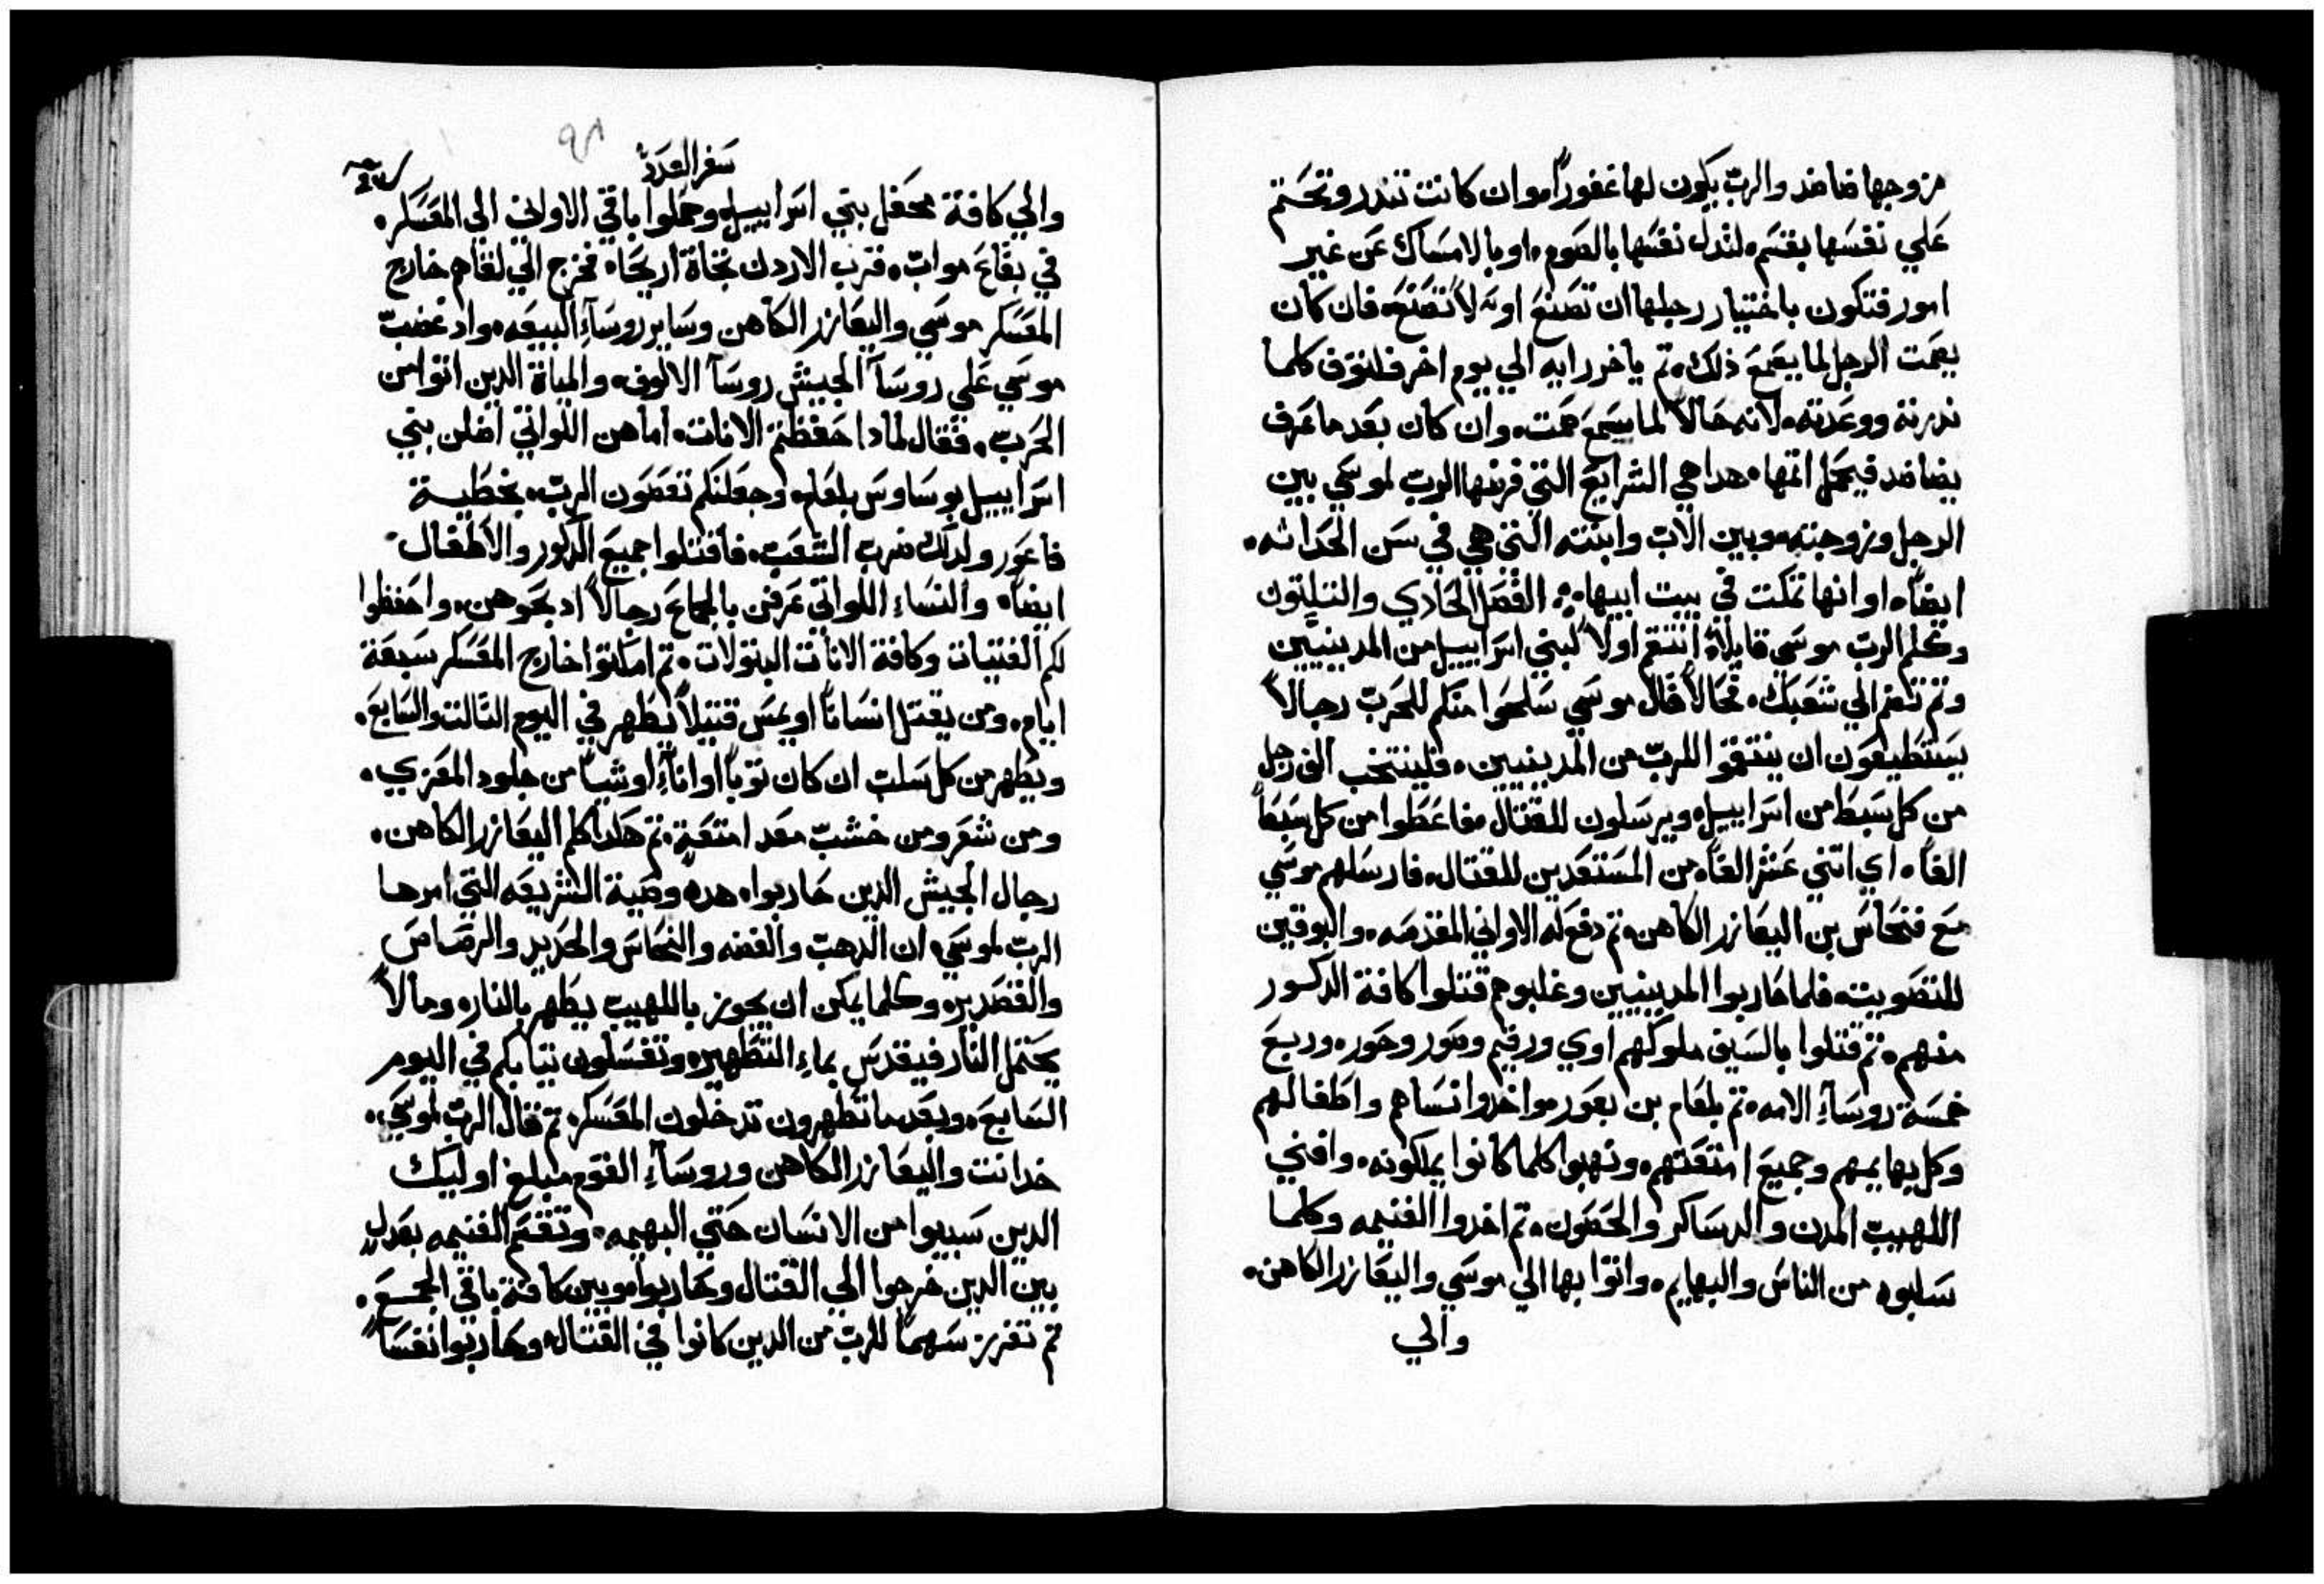 مزوجها ضاضد والرب يكون لها غفوراً، وان كانت تندر وتحتم
علي نفسها بقسم، لتدل نفسها بالصوم، او بالامساك عن غير
امور فتكون باختيار رجلها ان تصنع او لا تصنع، فان كان
يصمت الرجل لما يسمع ذلك، تم ياخر رايه الي يوم اخر فلتوف كلما
ندرته ووعدته، لانه حالاً لما سمع صمت، وان كان بعد ما عرف
يضاضد فيحمل اتمها، هدا هي الشرايع التي فرضها الرب لموسي بين
الرجل وزوجته، وبين الاب وابنته التي هي في سن الحداثه،
ايضاً، او انها تمكت في بيت ابيها، الفصل الحادي والتلتون
وكلم الرب موسي قايلاً، انتقم اولاً لبني اسراييل من المدينيين
وتم تنضم الي شعبك، فحالاً قال موسي سلحوا منكم للحرب رجالاً
يستطيعون ان ينتقموا للرب من المدينيين، فلينتخب الف رجل
من كل سبط من اسراييل، ويرسلون للقتال، فاعطوا من كل سبط
الفاً، اي اتني عشر الفاً من المستعدين للقتال، فارسلهم موسي
مع فنحاس بن اليعازر الكاهن، تم دفع له الاواني المقدسه، والبوقين
للتصويت، فلما حاربوا المدينيين وغلبوهم قتلوا كافة الدكور
منهم، تم قتلوا بالسيف ملوكهم اوي ورقيم وصور وحور، وربع
خمسة روساء الامه، تم بلعام بن بعور، واخدوا نساهم واطفالهم
وكل بهايمهم وجميع امتعتهم، ونهبوا كلما كانوا يملكونه، وافني
اللهيب المدن والدساكر والحصون، تم اخدوا الغنيمه وكلما
سلبوه من الناس والبهايم، واتوا بها الي موسي واليعازر الكاهن،
والي
سفر العدد
والي كافة محفل بني اسراييل، وحملوا باقي الاواني الي المعسكر،
في بقاع مواب، قرب الاردن تجاة اريحا، فخرج الي لقاهم خارج
المعسكر موسي واليعازر الكاهن وساير روساء البيعه، واد غضب
موسي علي روسآ الجيش روسآ الالوف، والمياة الدين اتوا من
الحرب، فقال لمادا حفظتم الانات، اما هن اللواتي اضلن بني
اسراييل بوساوس بلعام، وجعلنكم تعصون الرب، بخطية
فاعور ولدلك ضرب الشعب، فاقتلوا جميع الدكور والاطفال
ايضاً، والنساء اللواتي عرفن بالجماع رجالاً ادبحوهن، واحفظوا
لكم الفتيات وكافة الانات البتولات، تم امكتوا خارج المعسكر سبعة
ايام، ومن يقتل انساناً او يمس قتيلاً يطهر في اليوم التالت والسابع،
ويطهر من كل سلب ان كان توباً او اناءً او شياً من جلود المعزي،
ومن شعر ومن خشب معد امتعة، تم هكدا كلم اليعازر الكاهن،
رجال الجيش الدين حاربوا، هده وصية الشريعه التي امر بها
الرب لموسي، ان الدهب والفضه والنحاس والحديد والرصاص
والقصدير، وكلما يمكن ان يجوز باللهيب يطهر بالنار، وما لاً
يحتمل النار فيقدس بماء التطهير، وتغسلون تيابكم في اليوم
السابع، وبعد ما تطهرون تدخلون المعسكر، تم قال الرب لموسي،
خد انت واليعازر الكاهن وروساء القوم مبلغ اوليك
الدين سبيوا من الانسان حتي البهيمه، وتقسم الغنيمه بعدلٍ
بين الدين خرجوا الي القتال وحاربوا، وبين كافة باقي الجمع،
تم تفرز سهماً للرب من الدين كانوا في القتال، وحاربوا نفساً